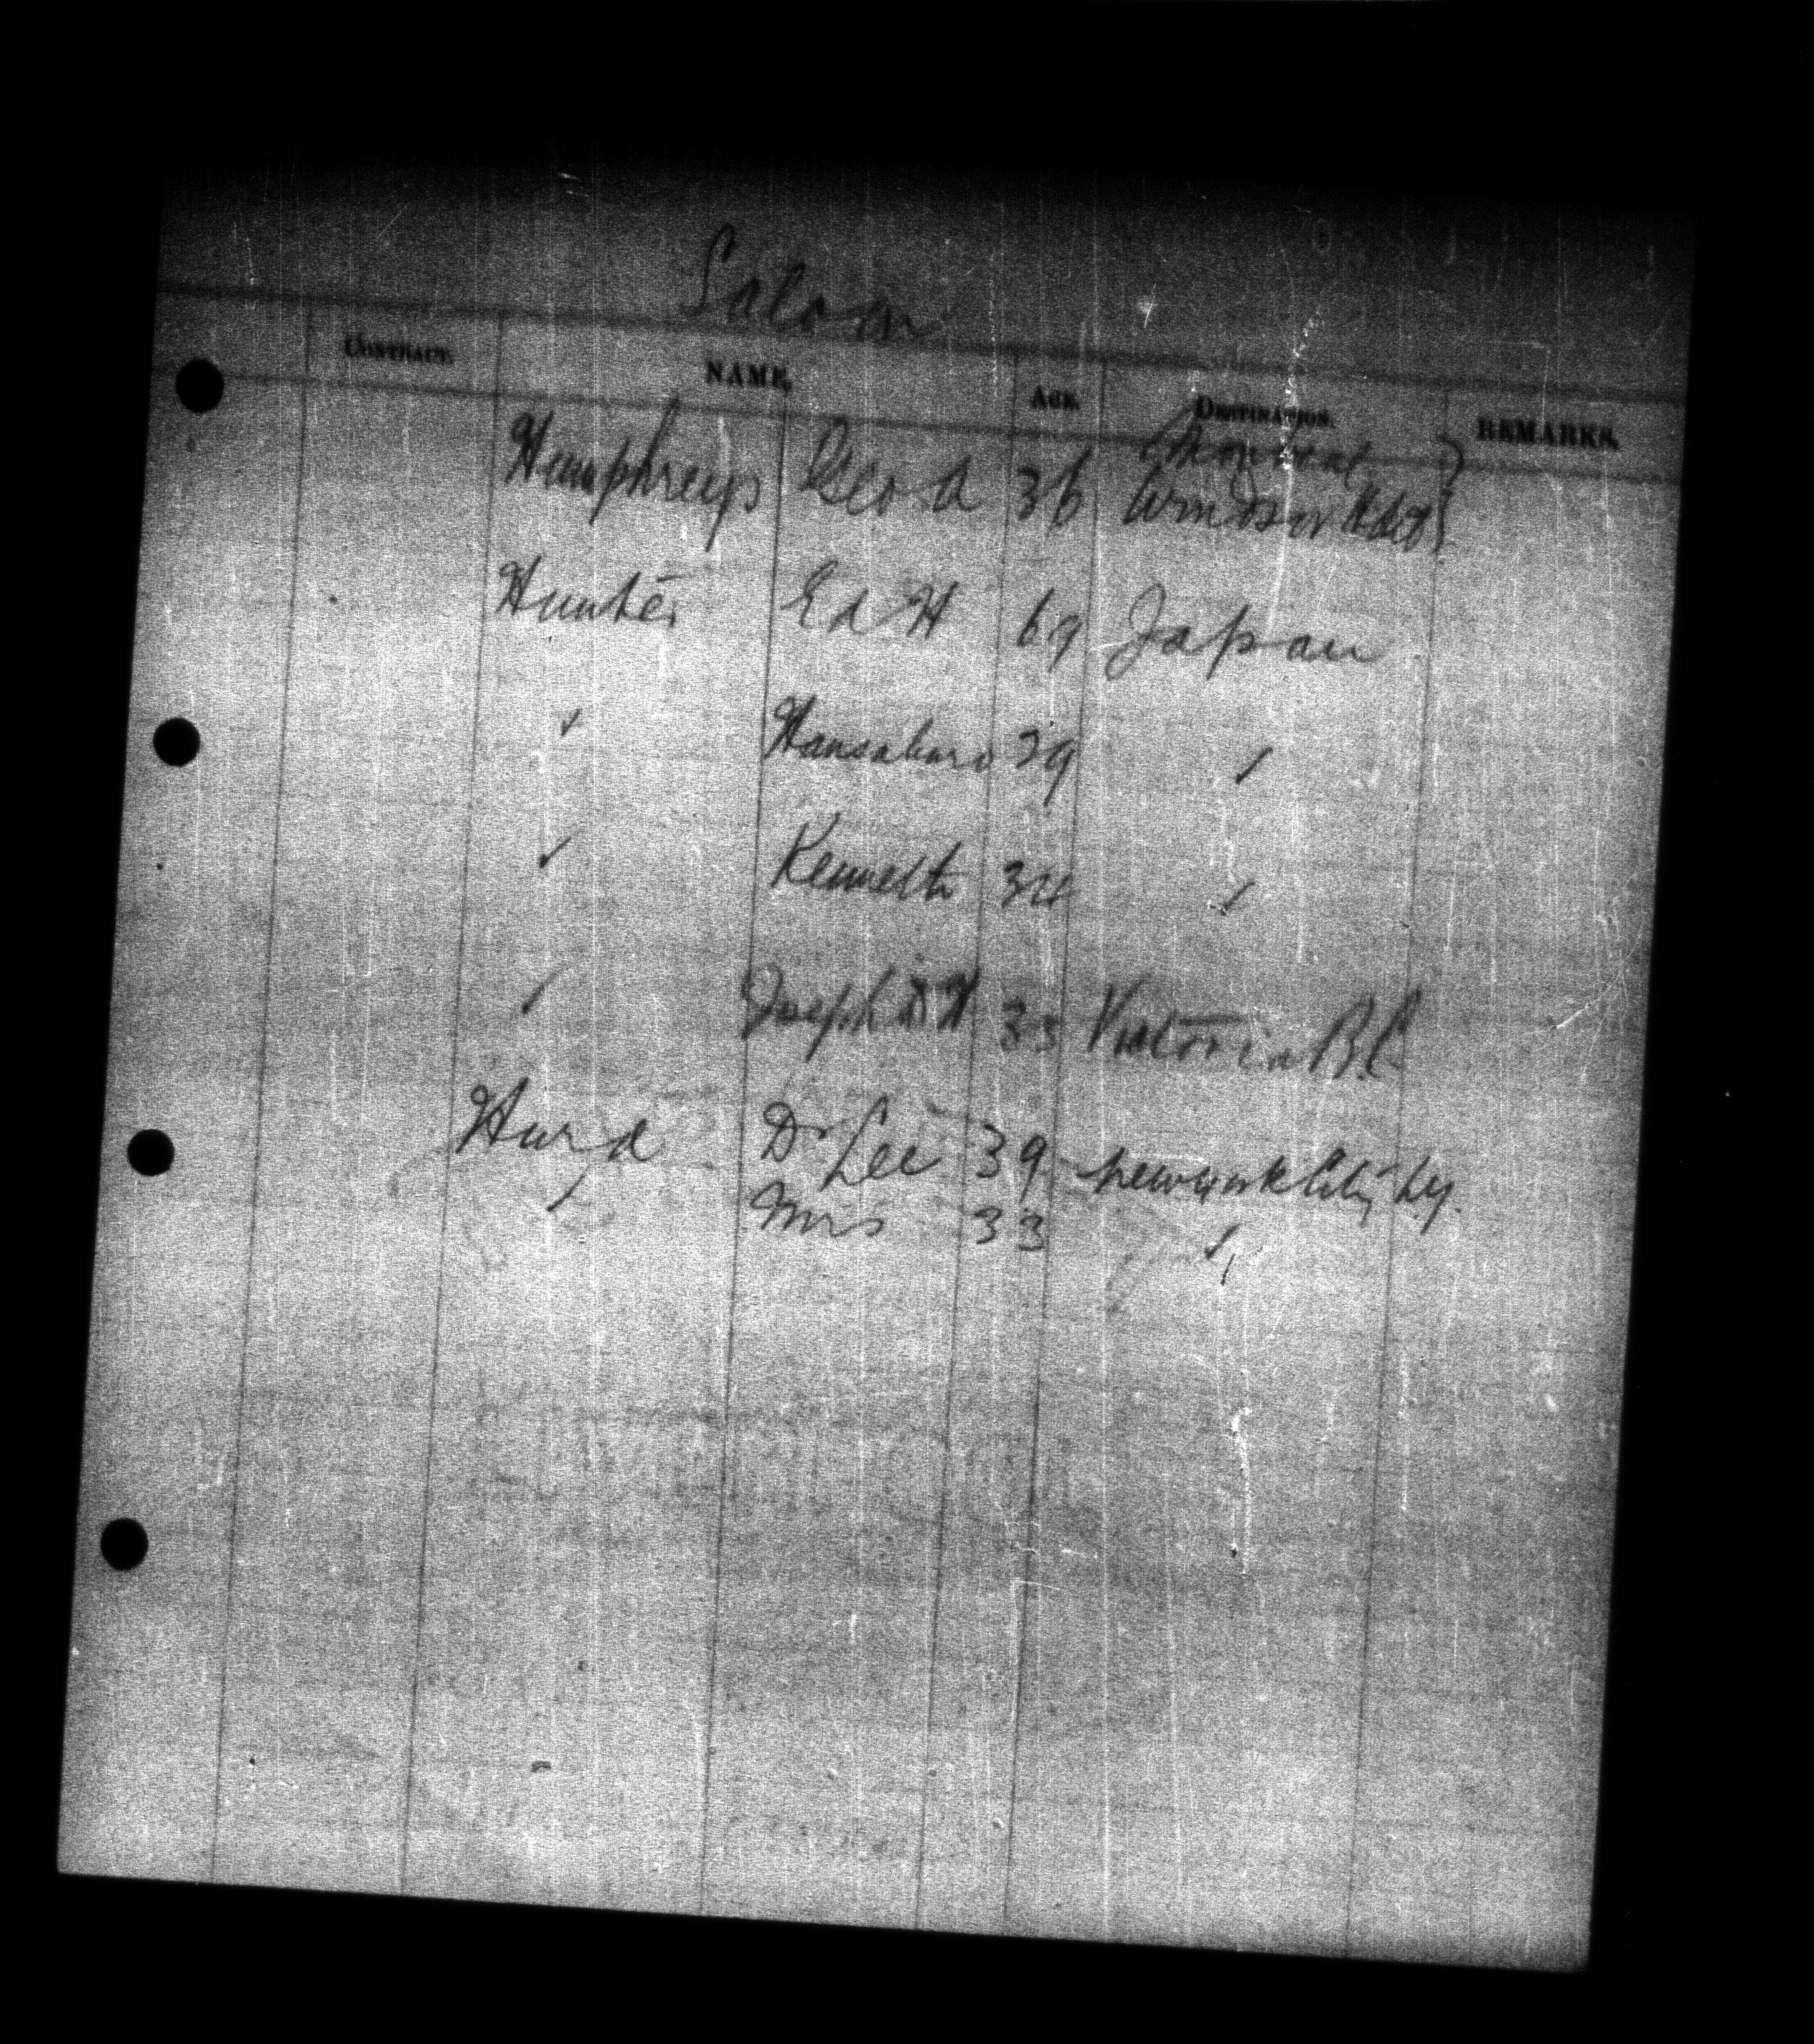 Saloon
CONTRACT. NAME. AGE. DESTINATION. REMARKS.
(Montreal
Humphreys Geo A 36 Windsor Hotel)
Hunter Ed H 69 Japan
✓ Hansaburo 29 ✓
✓ Kenneth 34 ✓
✓ Joseph 33 Victoria B.C
Hurd Dr Lee 39 New York City N.Y.
✓ Mrs 33 ✓